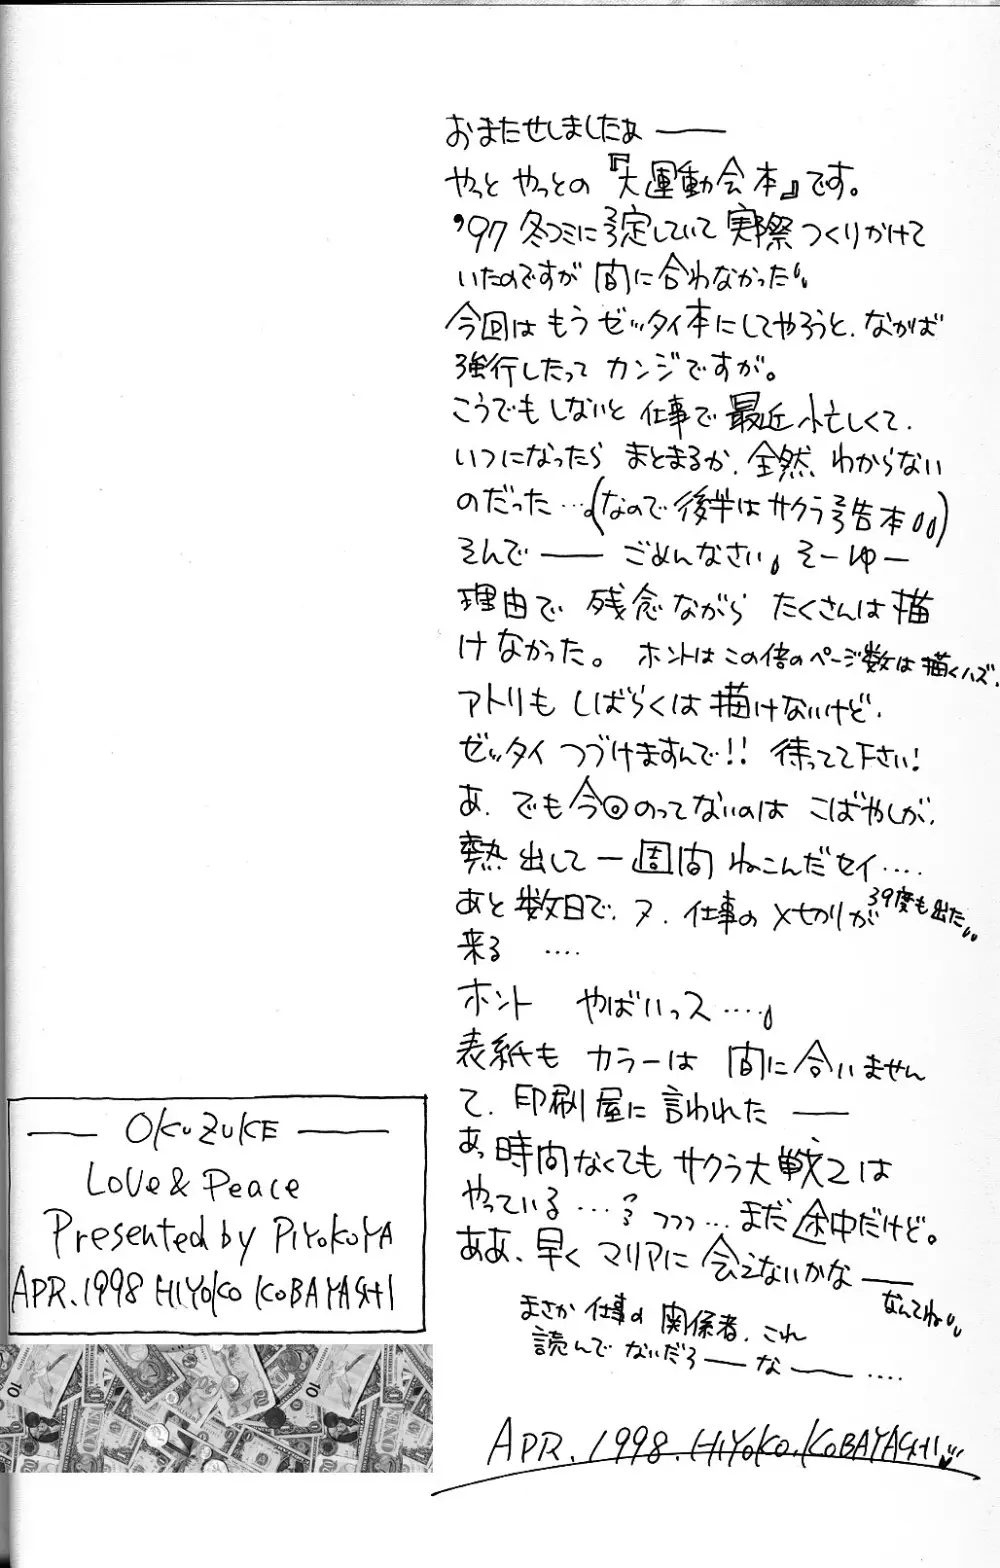 おまたせしましたぁ――
やっと やっとの『大運動会本』です。
'97 冬コミに予定していて 実際 つくりかけて
いたのですが 間に合わなかった
今回は もう ゼッタイ本にしてやろうと、なかば
強行したって カンジですが。
こうでもしないと 仕事で 最近 忙しくて、
いつになったら まとまるか、全然 わからない
のだった…。(なので 後半は サクラ予告本)
そんで―― ごめんなさい。そーゆー
理由で 残念ながら たくさんは 描
けなかった。 ホントは この倍のページ数は 描くハズ。
アトリも しばらくは 描けないけど、
ゼッタイ つづけますんで!! 待ってて下さい!
あ、でも 今回のってないのは こばやしが、
熱出して 一週間 ねこんだセイ….
39度も出た
あと 数日で、ヌ、仕事の 〆切りが
来る ….
ホント やばいっス….
表紙も カラーは 間に合いません
て、印刷屋に 言われた――
あっ時間なくても サクラ大戦2は
やっている…? ううう… まだ 途中だけど。
ああ、早く マリアに 会えないかな――
なんてね
まさか 仕事の 関係者、これ
読んで ないだろーな――….
APR. 1998. HIYOKO. KOBAYASHI
― OKUZUKE ―
Love & Peace
Presented by PIYOKOYA
APR. 1998 HIYOKO KOBAYASHI